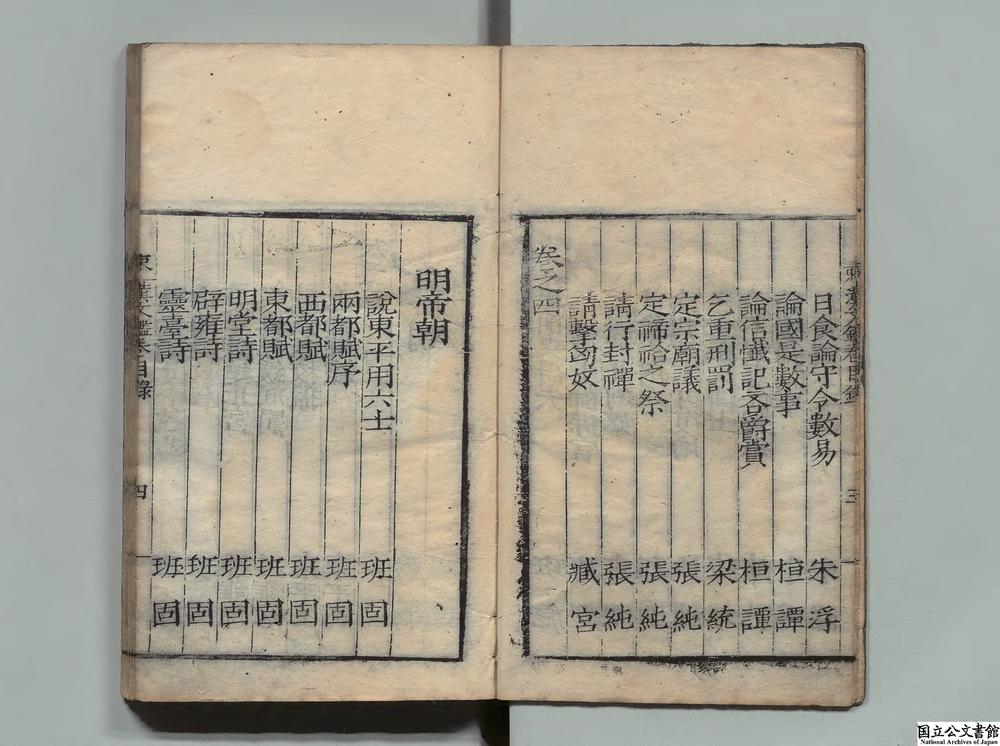 日食論守令數易 朱浮
論國是數事 桓譚
論信懺記吝爵賞 桓譚
乞重刑罰 梁統
定宗廟議 張純
定禘祫之祭 張純
請行封禪 張純
請擊匈奴 臧宮
卷之四
明帝朝
說東平用六士 班固
兩都賦序 班固
西都賦 班固
東都賦 班固
明堂詩 班固
辟雍詩 班固
靈臺詩 班固
東漢文鑑卷目錄 四
国立公文書館
National Archives of Japan